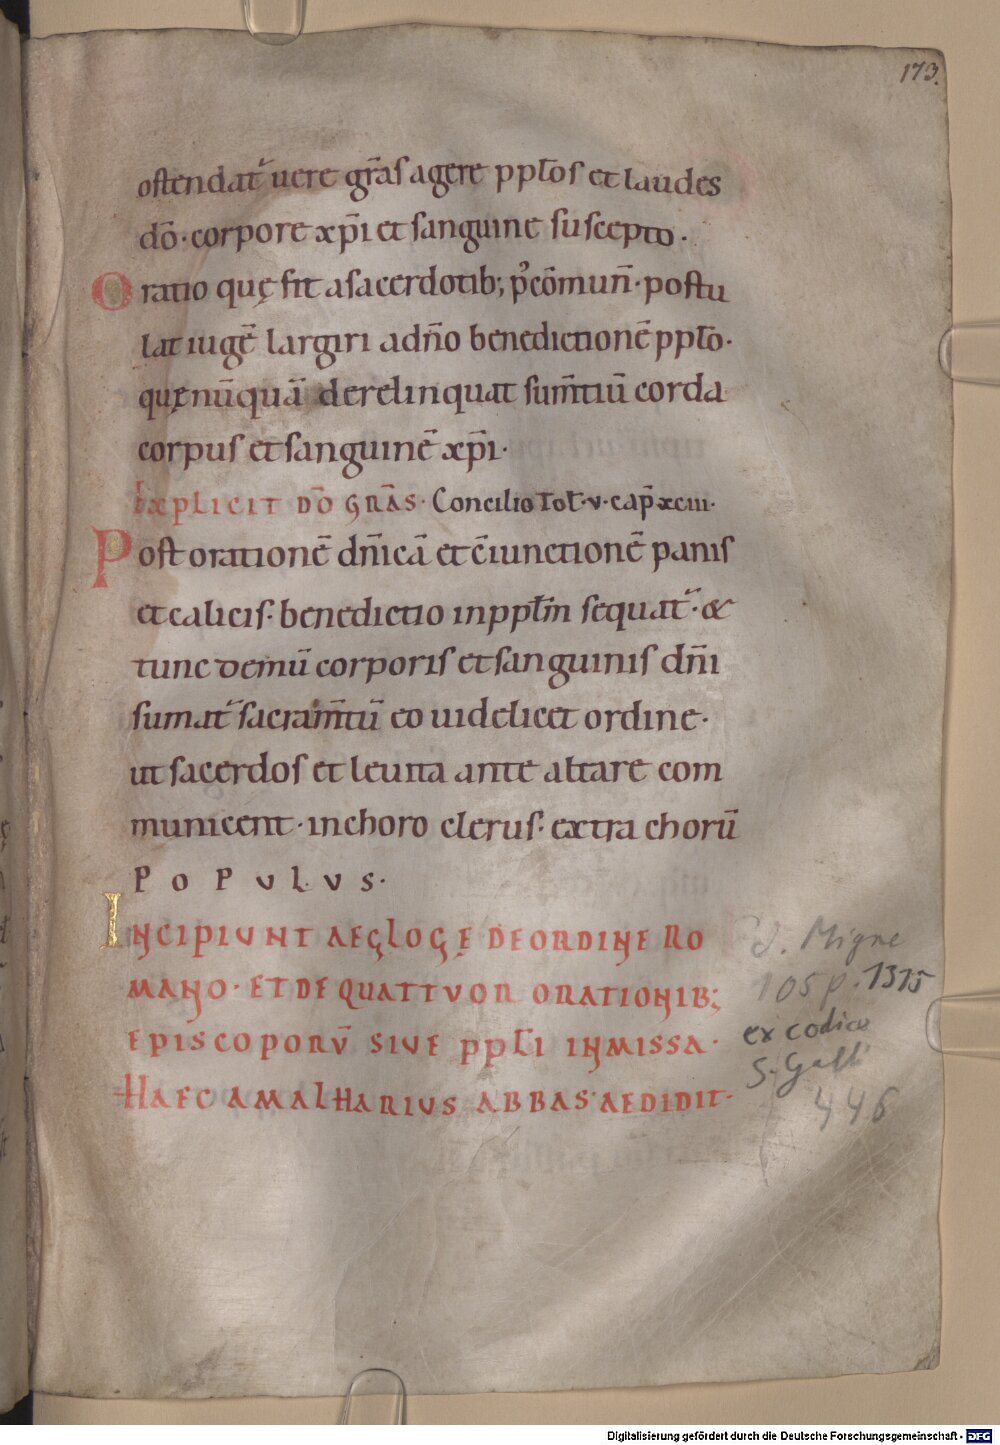 173.
ostendat᷑ uere gr̅as agere ppl̅os et laudes
dō· corpore xp̅i et sanguine suscepto·
Oratio quę fit a sacerdotib; p᷑cōmuniī· postu
lat iugē largiri ad dn̅o benedictionē ppl̅o·
quę nūquā derelinquat sum̅tiū corda
corpus et sanguinē xp̅i·
Explicit dō grās· Concilio Tol̅· v· cap̅ xciii·
Post orationē dn̅icā et c̄iunctionē panis
et calicis· benedictio in ppl̅m sequat᷑· &
tunc demū corporis et sanguinis dn̅i
sumat᷑ sacram̅tū eo uidelicet ordine·
ut sacerdos et leuita ante altare com
municent· in choro clerus· extra chorū
POPULUS·
INCIPIUNT AEGLOGĘ DE ORDINE RO
MANO· ET DE QUATTVOR ORATIONIB;
EPISCOPORV̄ SIVE PPL̅I IN MISSA·
HAEC AMALHARIUS ABBAS AEDIDIT·
d. Migne
105 p. 1315
ex codice
S. Galli
446
Digitalisierung gefördert durch die Deutsche Forschungsgemeinschaft - DFG